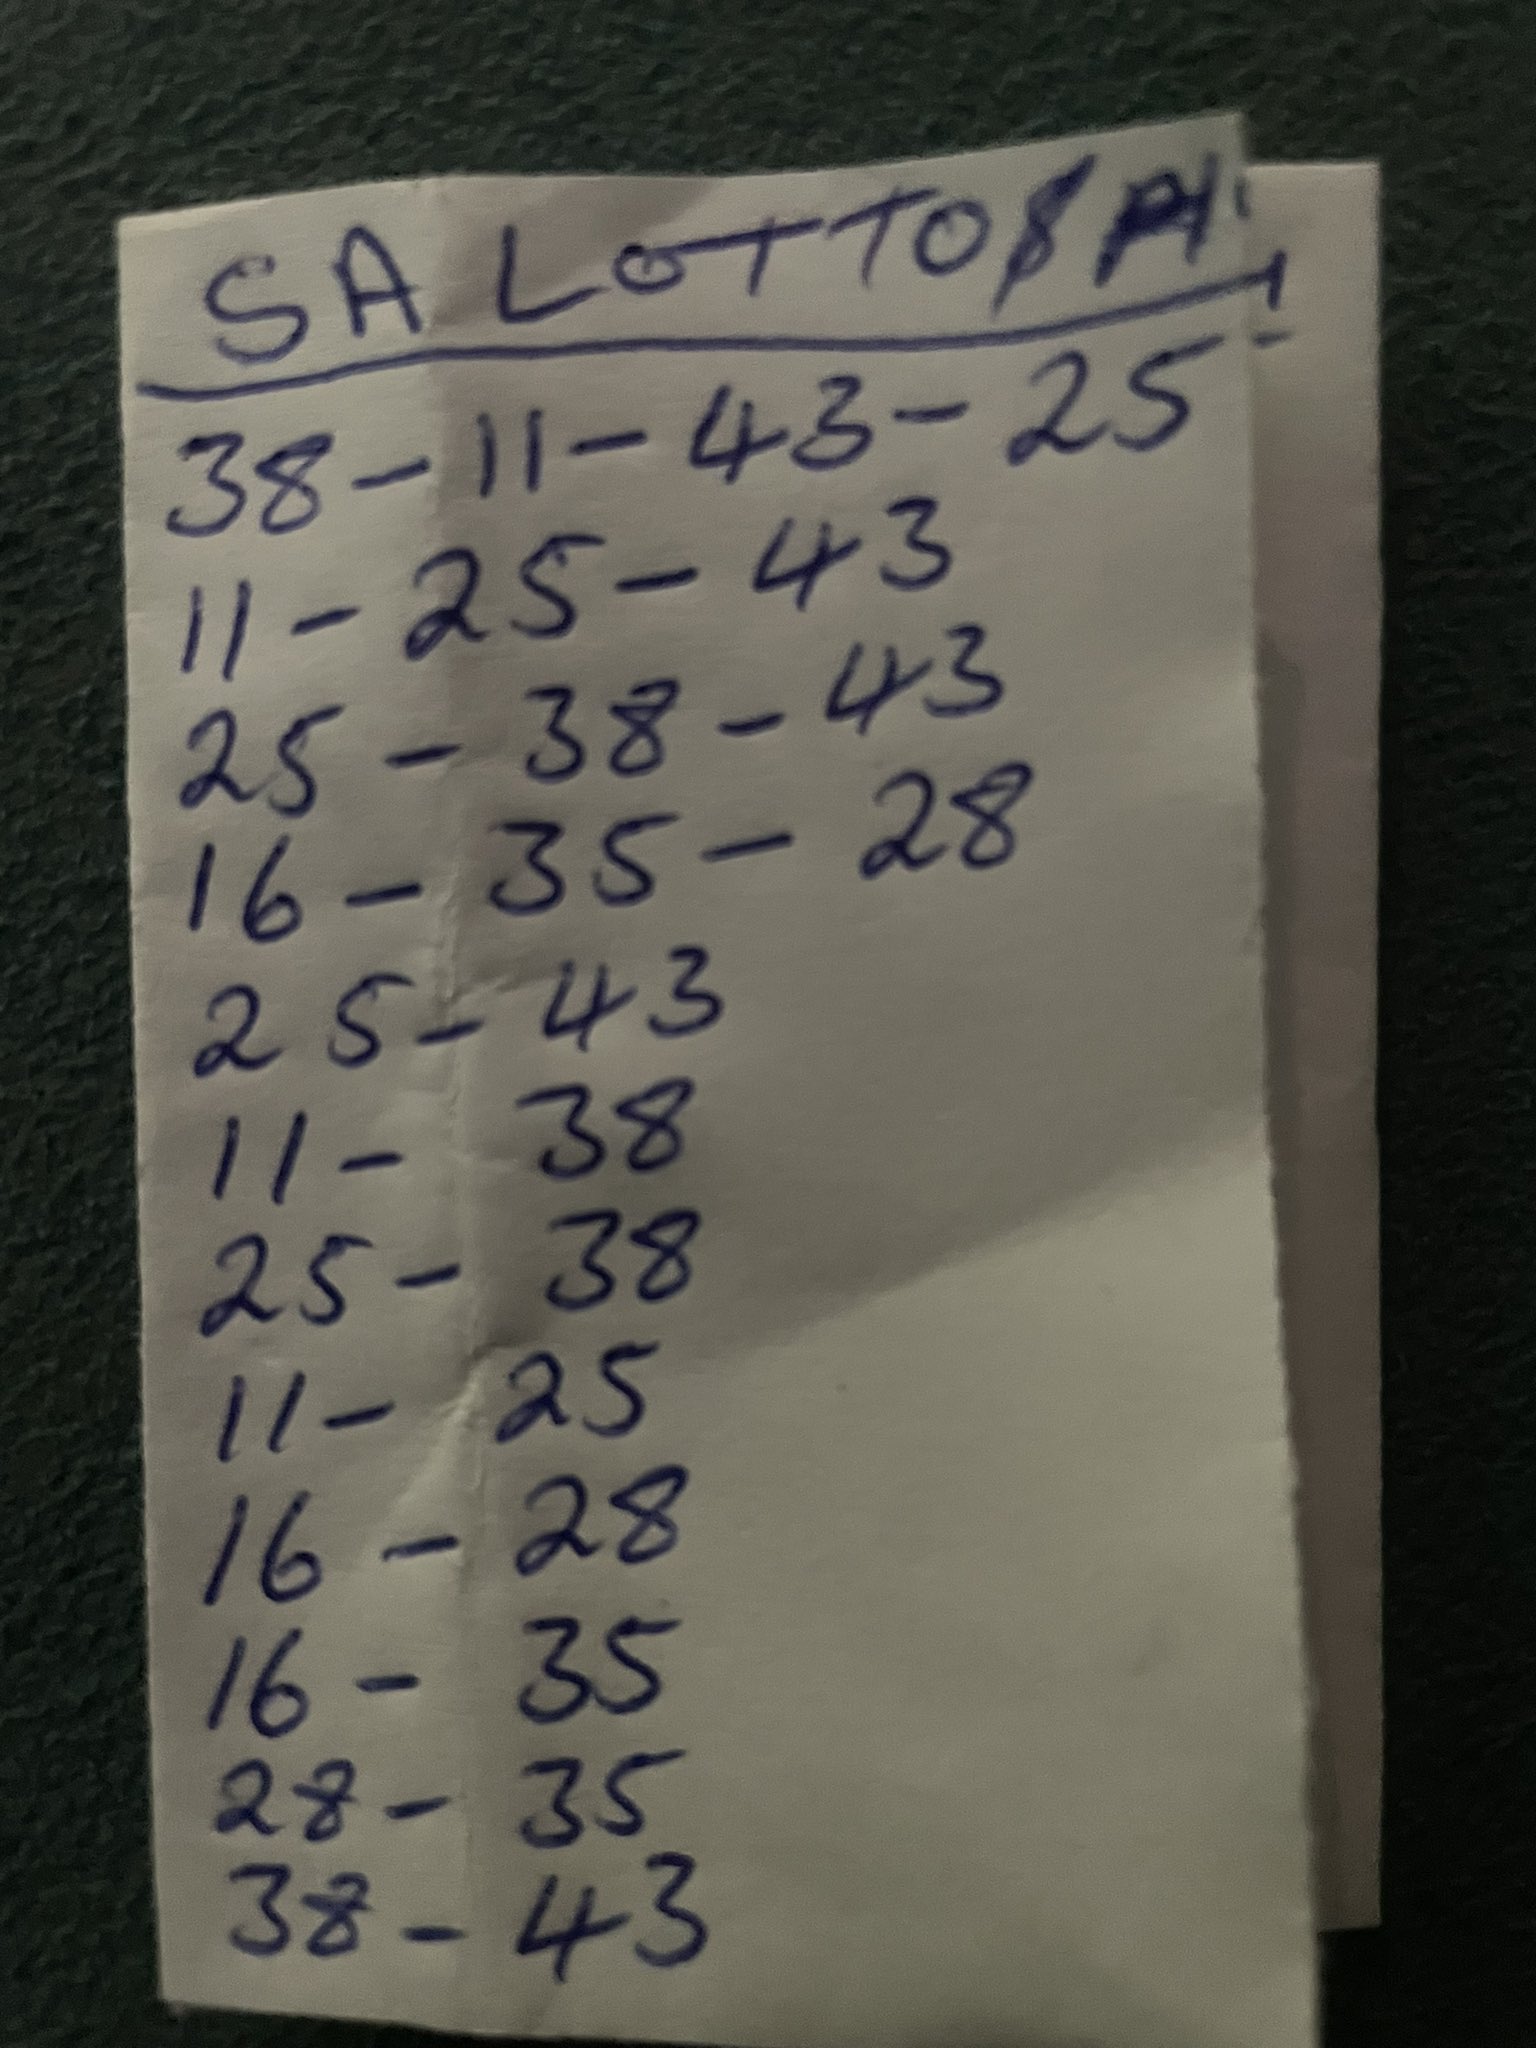 SA LOTTO
38-11-43-25
11-25-43
25-38-43
16-35-28
25-43
11-38
25-38
11-25
16-28
16-35
28-35
38-43